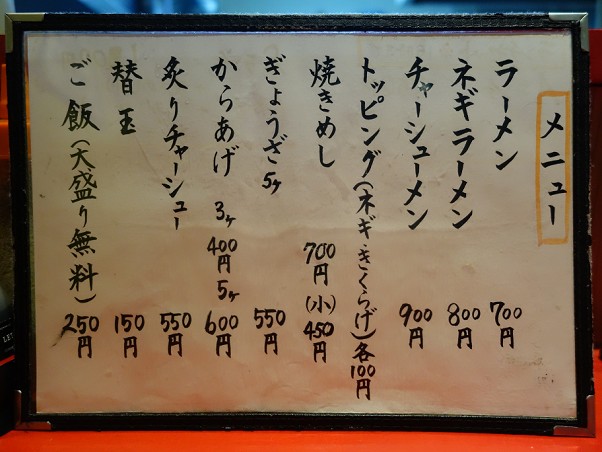 メニュー
ラーメン 700円
ネギラーメン 800円
チャーシューメン 900円
トッピング(ネギ・きくらげ)各100円
焼きめし 700円(小)450円
ぎょうざ5ヶ 550円
からあげ 3ヶ400円 5ヶ600円
炙りチャーシュー 550円
替玉 150円
ご飯(大盛り無料) 250円